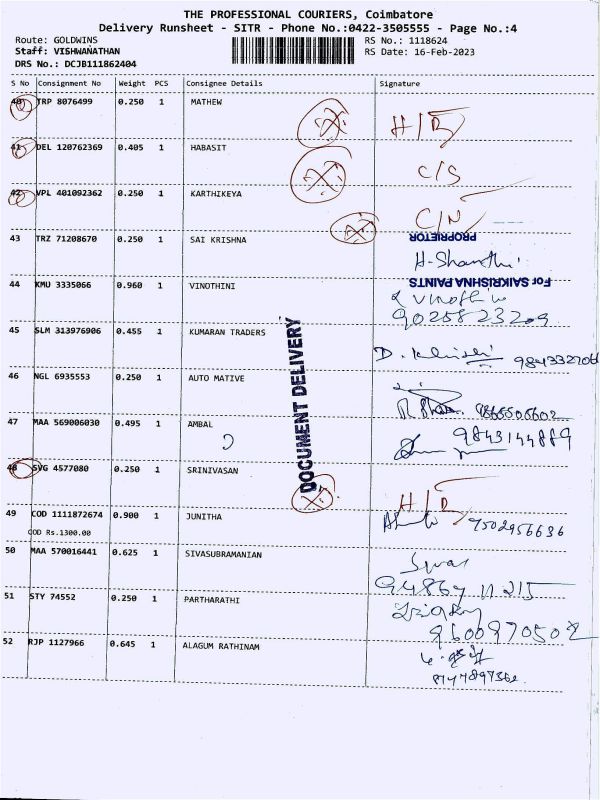 THE PROFESSIONAL COURIERS, Coimbatore
Delivery Runsheet - SITR - Phone No.:0422-3505555 - Page No.:4
Route: GOLDWINS RS No.: 1118624
Staff: VISHWANATHAN RS Date: 16-Feb-2023
DRS No.: DCJB111862404
S No Consignment No Weight PCS Consignee Details Signature
40 TRP 8076499 0.250 1 MATHEW H/D
41 DEL 120762369 0.405 1 HABASIT C/S
42 VPL 401092362 0.250 1 KARTHIKEYA C/N
PROPRIETOR
43 TRZ 71208670 0.250 1 SAI KRISHNA H-Shanthi
For SAIKRISHNA PAINTS
44 KMU 3335066 0.960 1 VINOTHINI Vinothini
9025823209
45 SLM 313976906 0.455 1 KUMARAN TRADERS
46 NGL 6935553 0.250 1 AUTO MATIVE
47 MAA 569006030 0.495 1 AMBAL 9843144889
DOCUMENT DELIVERY
48 SVG 4577080 0.250 1 SRINIVASAN H/D
49 COD 1111872674 0.900 1 JUNITHA 9502956636
COD Rs.1300.00
50 MAA 570016441 0.625 1 SIVASUBRAMANIAN
51 STY 74552 0.250 1 PARTHARATHI
9600970502
52 RJP 1127966 0.645 1 ALAGUM RATHINAM